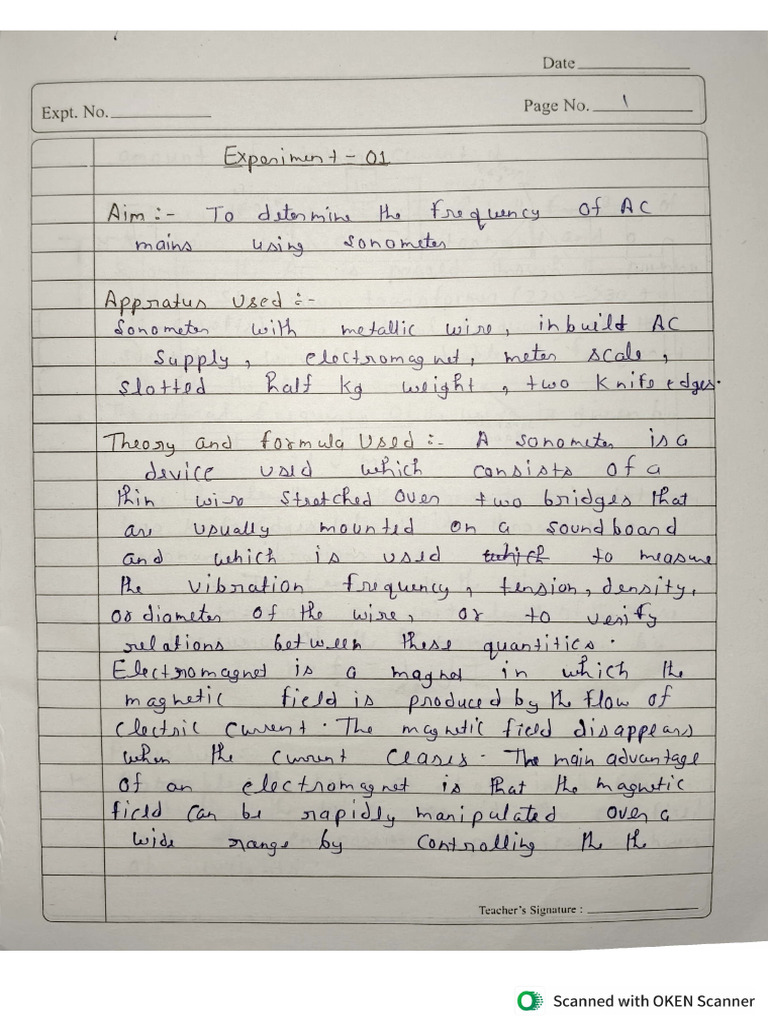 Date
Expt. No.
Page No. 1
Experiment - 01
Aim :- To determine the frequency of AC
mains using sonometer
Appratus Used :-
Sonometer with metallic wire, inbuild AC
Supply, electromagnet, meter scale,
Slotted half kg weight, two Knife edges.
Theory and formula Used :- A sonometer is a
device used which consists of a
thin wire stretched over two bridges that
are usually mounted on a soundboard
and which is used which to measure
the vibration frequency, tension, density,
or diameter of the wire, or to verify
relations between these quantities.
Electromagnet is a magnet in which the
magnetic field is produced by the flow of
electric current. The magnetic field disappears
when the current ceases. The main advantage
of an electromagnet is that the magnetic
field can be rapidly manipulated over a
wide range by controlling the the
Teacher's Signature :
Scanned with OKEN Scanner